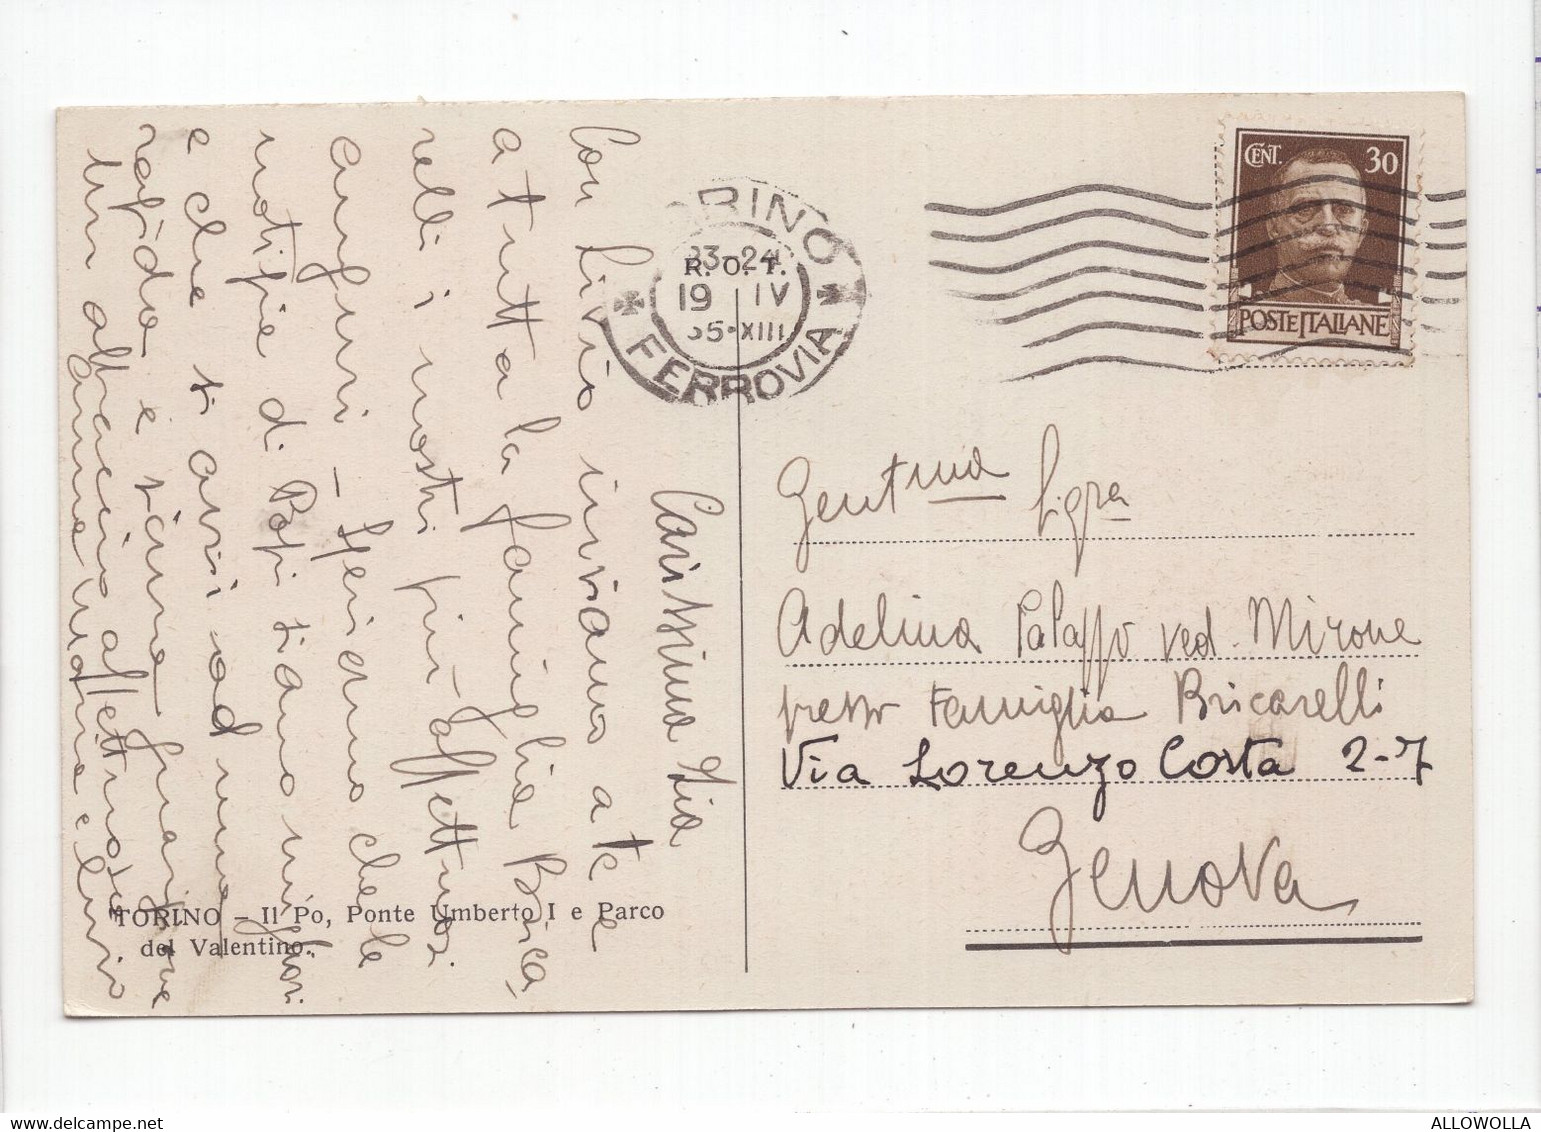 Carissima Zia
Con Livio inviamo a te
e a tutta la famiglia Brica-
relli i nostri più affettuosi
auguri - Speriamo che le
notizie di Popi siano migliori
e che si avvii ad una
rapida e sicura guarigione
Un abbraccio affettuoso
TORINO – Il Po, Ponte Umberto I e Parco
del Valentino.
TORINO
23-24
R. O. T.
19 IV
35-XIII
FERROVIA
CENT. 30
POSTE ITALIANE
Gentma Sigra
Adelina Palazzo ved. Mirone
presso Famiglia Bricarelli
Via Lorenzo Costa 2-7
Genova
ALLOWOLLA